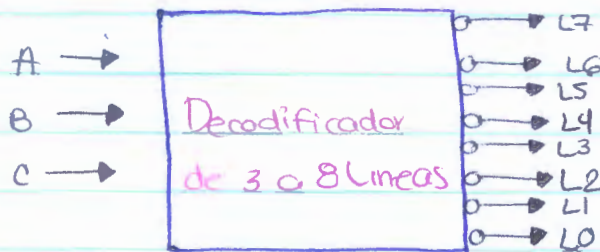 A
B
C
Decodificador
de 3 a 8 Lineas
L7
L6
L5
L4
L3
L2
L1
L0